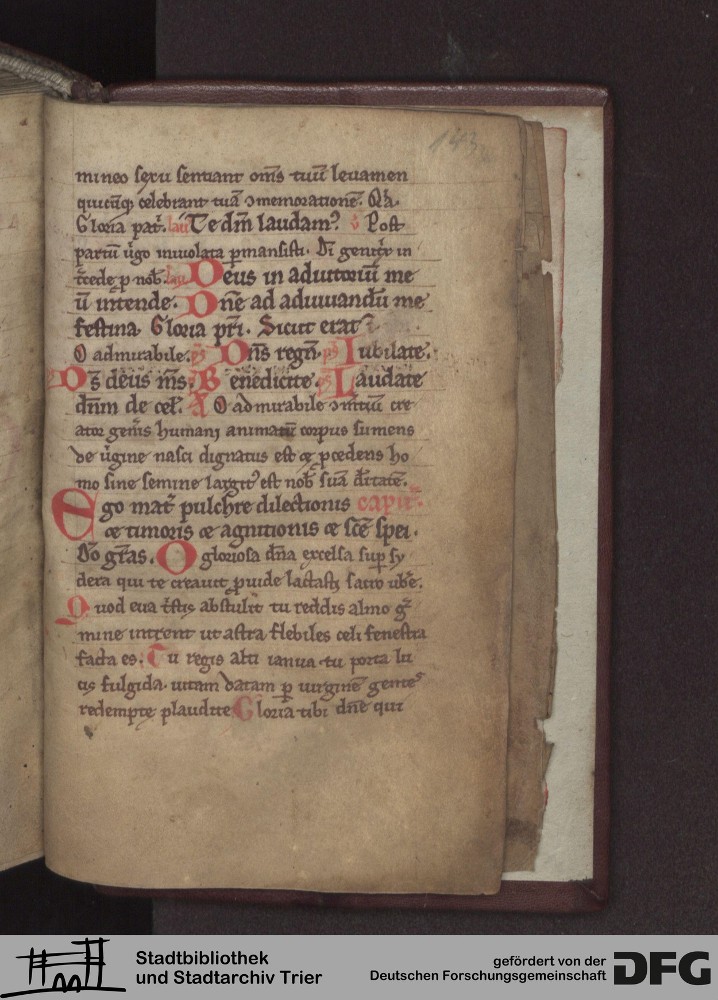 143
mineo sexu sentiant om̄s tuū leuamen
quicūq; celebrant tuā ɔmemorationē. Qa.
Gloria pat̄. lau Te dm̄ laudam? v̄ Post
partū ūgo inuiolata ꝑmansisti. Di genitͥx in
t̄cede ꝓ nob̄. lau Deus in adiutoriū me
ū intende. Dn̄e ad adiuuandū me
festina. Gloria pr̄i. Sicut erat
O admirabile. ps̄ Dn̄s regn̄. ps̄ Iubilate.
ps̄ Ds̄ deus m̄s. Benedicite. ps̄ Laudate
dn̄m de cel̄. A O admirabile ɔm̄tiū cre
ator gen̄is humani animatū corpus sumens
de ūgine nasci dignatus est ꝫ ꝓcedens ho
mo sine semine largitꝰ est nob̄ suā d̄itatē.
Ego mat̄ pulchre dilectionis capit̄.
ꝫ timoris ꝫ agnitionis ꝫ sc̄e spei.
Do gr̄as. O gloriosa dn̄a excelsa suꝑ sy
dera qui te creauit ꝓuide lactasti sacro ub̄e.
Quod eua t̄stis abstulit tu reddis almo ḡ
mine intrent ut astra flebiles celi fenestra
facta es. Tu regis alti ianua tu porta lu
cis fulgida. uitam datam ꝑ uirginē gentes
redempte plaudite Gloria tibi dn̄e qui
Stadtbibliothek
und Stadtarchiv Trier
gefördert von der
Deutschen Forschungsgemeinschaft
DFG